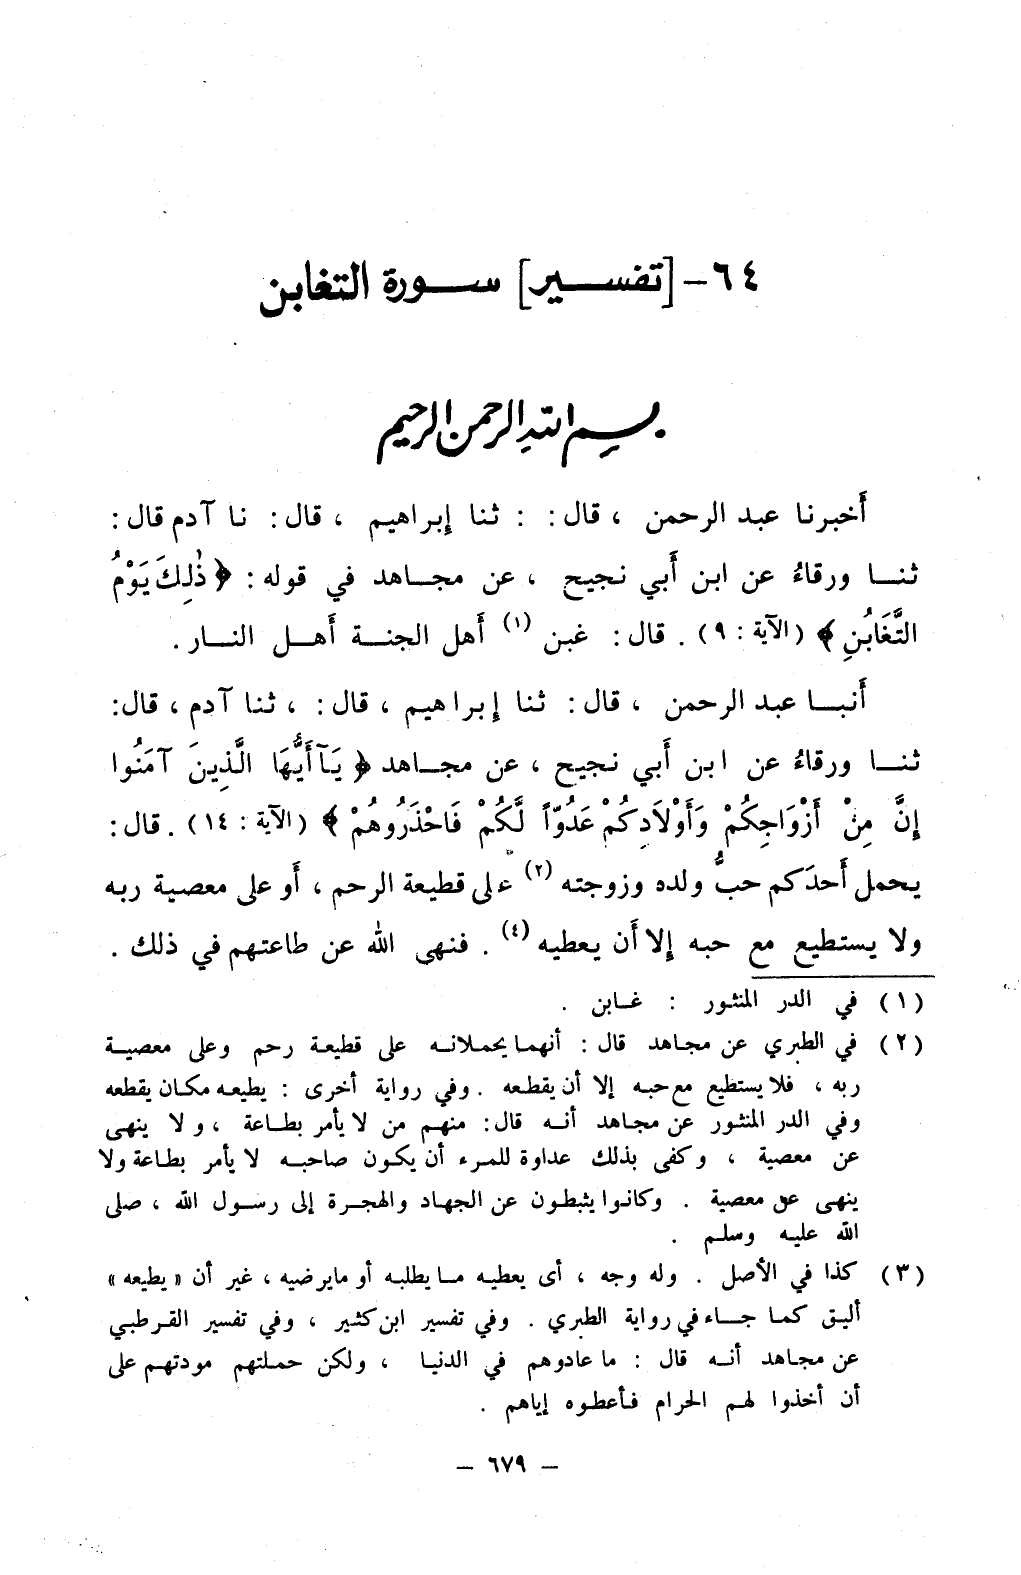 ٦٤ - [تفسير] سورة التغابن
بسم الله الرحمن الرحيم
أخبرنا عبد الرحمن ، قال : : ثنا إبراهيم ، قال : نا آدم قال :
ثنا ورقاءُ عن ابن أبي نجيح ، عن مجاهد في قوله : ﴿ ذٰلِكَ يَوْمُ
التَّغَابُنِ ﴾ (الآية : ٩) . قال : غبن (١) أهل الجنة أهل النار .
أنبا عبد الرحمن ، قال : ثنا إبراهيم ، قال : ، ثنا آدم ، قال :
ثنا ورقاءُ عن ابن أبي نجيح ، عن مجاهد ﴿ يَآ أَيُّهَا الَّذِينَ آمَنُوا
إِنَّ مِنْ أَزْوَاجِكُمْ وَأَوْلَادِكُمْ عَدُوّاً لَّكُمْ فَاحْذَرُوهُمْ ﴾ (الآية : ١٤) . قال :
يحمل أحدَكم حبُّ ولده وزوجته (٢) على قطيعة الرحم ، أو على معصية ربه
ولا يستطيع مع حبه إلا أن يعطيه (٤) . فنهى الله عن طاعتهم في ذلك .
(١) في الدر المنثور : غابن .
(٢) في الطبري عن مجاهد قال : أنهما يحملانه على قطيعة رحم وعلى معصية
ربه ، فلا يستطيع مع حبه إلا أن يقطعه . وفي رواية أخرى : يطيعه مكان يقطعه
وفي الدر المنثور عن مجاهد أنه قال : منهم من لا يأمر بطاعة ، و لا ينهى
عن معصية ، وكفى بذلك عداوة للمرء أن يكون صاحبه لا يأمر بطاعة ولا
ينهى عن معصية . وكانوا يثبطون عن الجهاد والهجرة إلى رسول الله ، صلى
الله عليه وسلم .
(٣) كذا في الأصل . وله وجه ، أى يعطيه ما يطلبه أو مايرضيه ، غير أن « يطيعه »
أليق كما جاء في رواية الطبري . وفي تفسير ابن كثير ، وفي تفسير القرطبي
عن مجاهد أنه قال : ما عادوهم في الدنيا ، ولكن حملتهم مودتهم على
أن أخذوا لهم الحرام فأعطوه إياهم .
- ٦٧٩ -